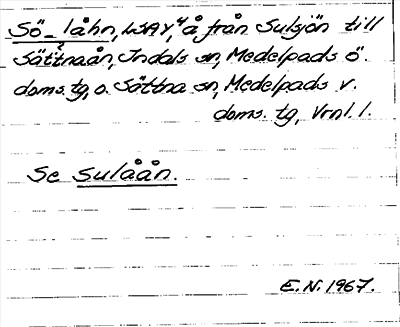 Sö-låhn, LSAY, 4 å från Sulsjön till
Sättnaån, Indals sn, Medelpads ö.
doms. tg, o. Sättna sn, Medelpads v.
doms. tg, Vrnl. l.
Se Sulåån.
E.N. 1967.